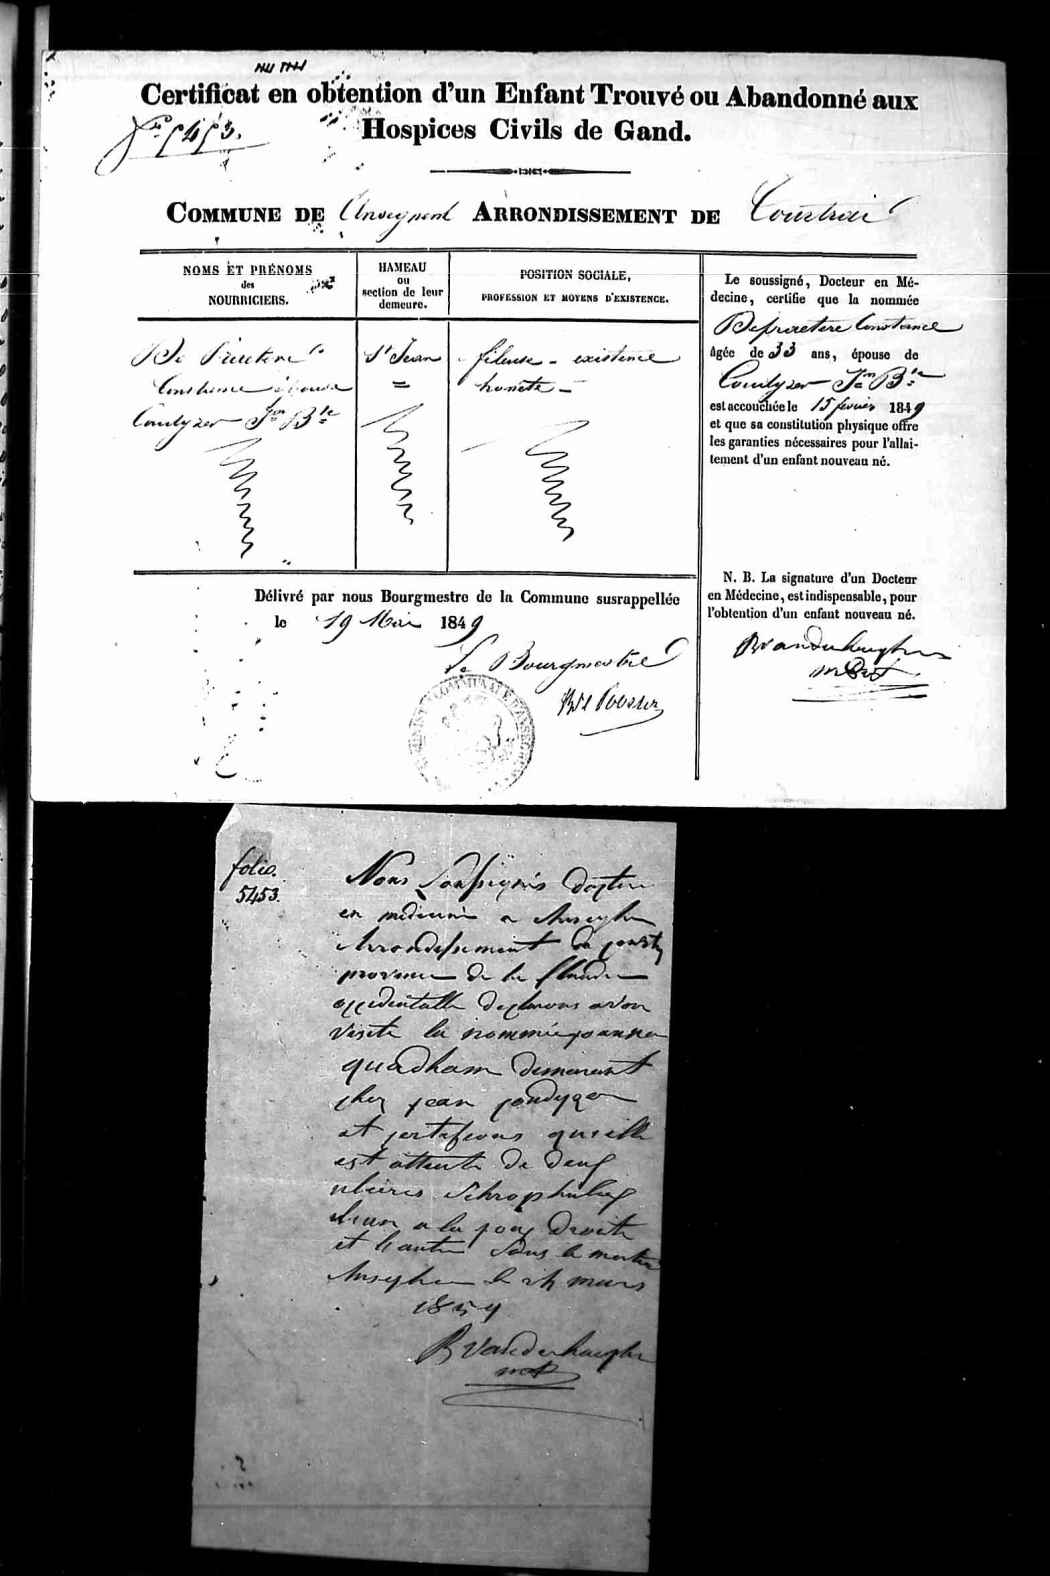 Certificat en obtention d'un Enfant Trouvé ou Abandonné aux
Hospices Civils de Gand.
Fo. 5453.
COMMUNE DE Anseghem ARRONDISSEMENT DE Courtrai
NOMS ET PRÉNOMS
des
NOURRICIERS.
HAMEAU
ou
section de leur
demeure.
POSITION SOCIALE,
PROFESSION ET MOYENS D'EXISTENCE.
De
Constance épouse
Jn Bte
St Jean
=
fileuse - existence
honete -
Le soussigné, Docteur en Mé-
decine, certifie que la nommée
Constance
âgée de 33 ans, épouse de
Jn Bte
est accouchée le 15 fevrier 1849
et que sa constitution physique offre
les garanties nécessaires pour l'allai-
tement d'un enfant nouveau né.
N. B. La signature d'un Docteur
en Médecine, est indispensable, pour
l'obtention d'un enfant nouveau né.
Délivré par nous Bourgmestre de la Commune susrappellée
le 19 Mai 1849
Le Bourgmestre
folio.
5453.
Nous Soussignés docteur
en medecine a Anseghem
Arrondissement de
province de la flandre
occidentalle declarons avoir
visite la nommée joanna
quadham demeurant
chez jean
et certifions quelle
est atteinte de deux
ulceres
a la droite
et l'autre sous le
Anseghem le mars
185
B Vanderhaeghe